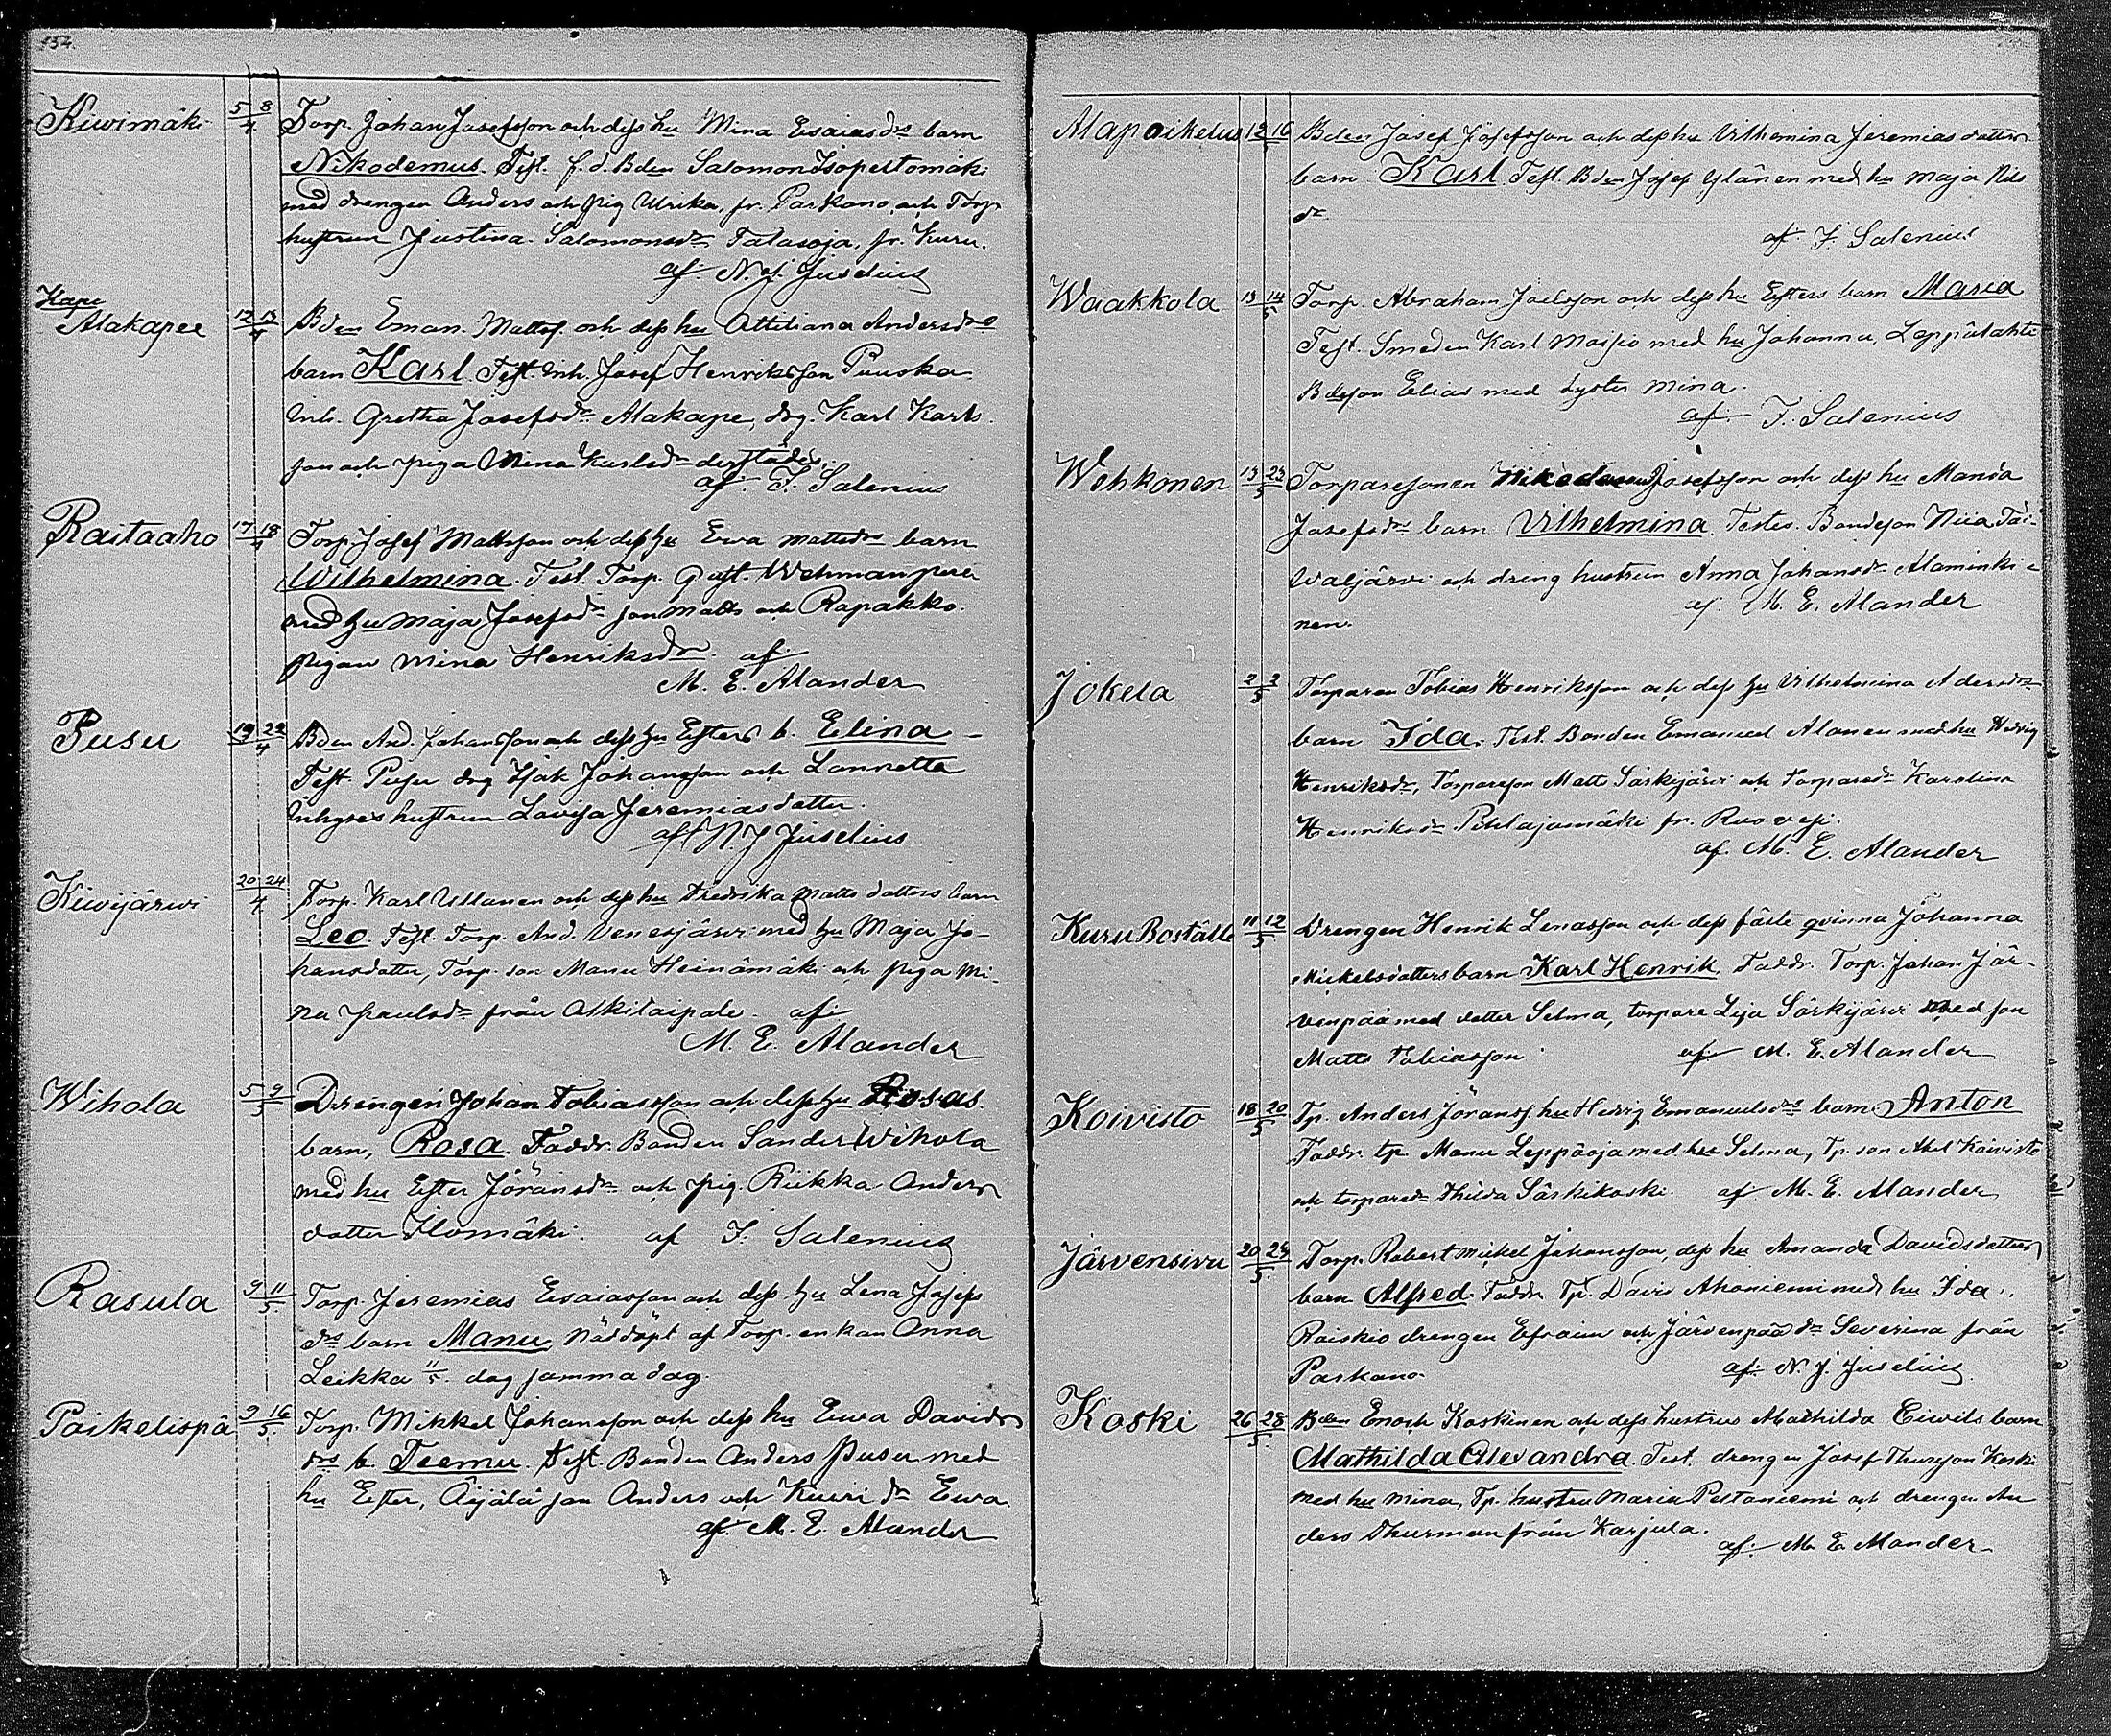 152.
Kiwimäki 5 8/4 Torp. Johan Josefsson och dess hu Mina Esaiasdrs barn
Nikodemus. Test. f. d. Bden Salomon Isopeltomäki
med drengen Anders och pig Ulrika, fr. Parkano, och Torp
hustrun Justina Salomonsdr Talasoja, fr. Kuru.
af. N. J. Juselius
Kape
Alakapee 12 13/4 Bden Eman. Mattss. och dess hu Attiliana Andersdrs
barn Karl. Test. Inh. Josef Henriksson Puuska
Inh. Gretha Josefsdr Alakape, drg. Karl Karls
son och piga Mina Karlsdr derstädes.
af. F. Salenius
Raitaaho 17 18/4 Torp. Josef Mattsson och dess hu Ewa Mattsdrs barn
Wilhelmina. Test. Torp. Gust. Wehmanperä
med hu Maja Josefsdr son Matts och Rapakko
pigan Mina Henriksdr. af
M. E. Alander
Pusu 19 22/4 Bden And. Johansson och dess hu Esters b. Elina
Test. Pusu drg Isak Johansson och Lonnetta
Inhyses hustrun Lovisa Jeremiasdatter.
af N. J. Juselius
Kiwijärwi 20 24/4 Torp. Karl Ullanen och dess hu Fredrika Mattsdatters barn
Leo. Test. Torp. And. Venesjärvi med hu Maja Jo-
hansdatter, Torp. son Manu Heinämäki och piga Mi-
na Paulsdr från Alkitaipale. af
M. E. Alander
Wihola 5 9/5 Drengen Johan Tobiasson och dess hu Rosas
barn, Rosa. Faddr. Bonden Sander Wihola
med hu Ester Jöransdr och pig. Riikka Anders
datter Ilomäki. af F. Salenius
Rasula 9 11/5 Torp. Jeremias Esaiasson och dess hu Lena Josefs
drs barn Manu, Nöddöpt af Torp. enkan Anna
Leikka 11/5. dog samma dag.
Poikelispä 9 16/5 Torp. Mikkel Johansson och dess hu Ewa Davids
drs b. Teemu. Test. Bonden Anders Pusu med
hu Ester, Äijälä son Anders och Kuuri dr Ewa.
af M. E. Alander
Alapoikelus 12 16/5 Bden Josef Josefsson och dess hu Vilhemina Jeremiasdatters
barn Karl. Test. Bden Josef Ylänen med hu Maja Nils
dr.
af. F. Salenius
Waakkola 13 14/5 Torp. Abraham Joelsson och dess hu Esters barn Maria
Test. Smeden Karl Moisio med hu Johanna, Leppälahti
Bdeson Elias med syster Mina.
af. F. Salenius
Wehkonen 13 23/5 Torparesonen Nikodemus Josefsson och dess hu Manda
Josefsdrs barn Vilhelmina. Testes. Bondeson Niia Tai-
waljärvi och dreng hustrun Anna Johansdr Alaminki-
nen. af. M. E. Alander
Jokela 2 3/5 Torparen Tobias Henriksson och dess hu Vilhelmina Adersdrs
barn Ida. Test. Bonden Emanuel Alanen med hu Hedvig
Henriksdr, Torpareson Matts Särkijärvi och Torparedr Karolina
Henriksdr Pihlajamäki fr. Ruovesi.
af. M. E. Alander
Kuru Boställe 11 12/5 Drengen Henrik Lenasson och dess fäste qvinna Johanna
Mickelsdatters barn Karl Henrik. Faddr. Torp. Johan Jär-
venpää med datter Selma, torpare Lisa Särkijärvi med son
Matts Tobiasson. af. M. E. Alander
Koivisto 18 20/5 Tp. Anders Joranss. hu Hedvig Emanuelsdrs barn Anton
Faddr. tp. Manu Leppäoja med hu Selma, Tp. son Abel Koivisto
och torparedr Thilda Särkikoski. af M. E. Alander
Järvensivu 20 23/5 Torp. Robert Mickel Johansson, dess hu Amanda Davidsdatters
barn Alfred. Faddr. Tp. David Ahoniemi med hu Ida.
Raiskio drengen Efraim och Järvenpää dr Severina från
Parkano. af. N. J. Juselius
Koski 26 28/5 Bden Enoch Koskinen och dess hustrus Mathilda Eiwils barn
Mathilda Alexandra. Test. drengen Josef Thuresson Koski
med hu Mina, Tp. hustru Maria Peltoniemi och drengen An
ders Thurman från Karjula.
af. M. E. Alander